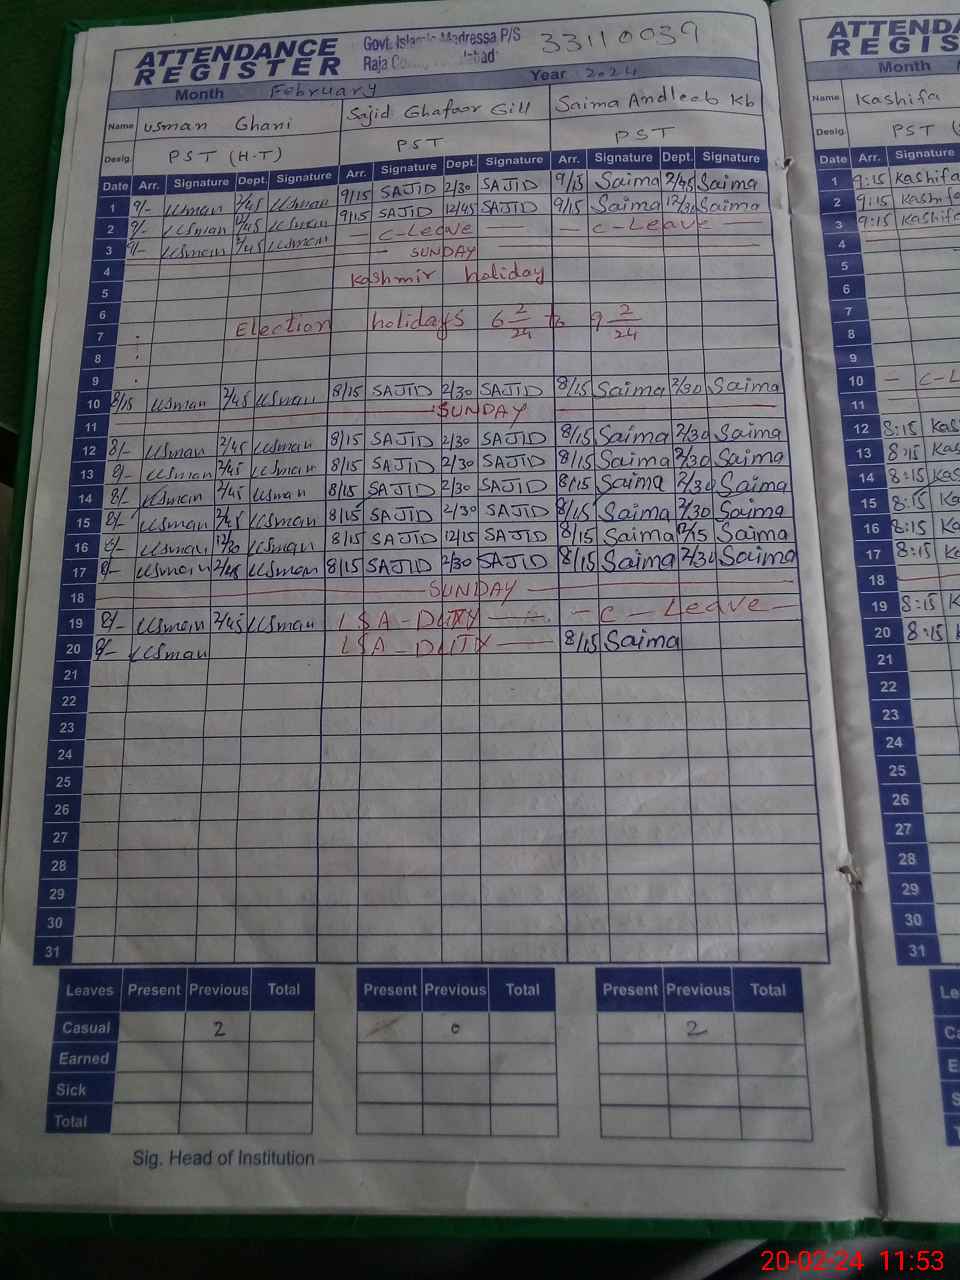 ATTENDANCE REGISTER
Govt. Islamic Madressa P/S
Raja
33110039
Month February Year 2024
Name Usman Ghani Sajid Ghafoor Gill Saima Andleeb Kb
Desig. PST (H-T) PST PST
Date Arr. Signature Dept. Signature Arr. Signature Dept. Signature Arr. Signature Dept. Signature
1 9/- Usman 2/45 Usman 9/15 SAJID 2/30 SAJID 9/15 Saima 2/45 Saima
2 9/- Usman 12/45 Usman 9/15 SAJID 12/45 SAJID 9/15 Saima 12/30 Saima
3 9/- Usman 2/45 Usman — C-Leave — — C-Leave —
4 — SUNDAY —
5 Kashmir holiday
6
7 Election holidays 6 2/24 to 9 2/24
8
9
10 8/15 Usman 2/45 Usman 8/15 SAJID 2/30 SAJID 8/15 Saima 2/30 Saima
11 SUNDAY
12 8/- Usman 2/45 Usman 8/15 SAJID 2/30 SAJID 8/15 Saima 2/30 Saima
13 8/- Usman 2/45 Usman 8/15 SAJID 2/30 SAJID 8/15 Saima 2/30 Saima
14 8/- Usman 2/45 Usman 8/15 SAJID 2/30 SAJID 8/15 Saima 2/30 Saima
15 8/- Usman 2/45 Usman 8/15 SAJID 2/30 SAJID 8/15 Saima 2/30 Saima
16 8/- Usman 12/30 Usman 8/15 SAJID 12/15 SAJID 8/15 Saima 12/15 Saima
17 8/- Usman 2/45 Usman 8/15 SAJID 2/30 SAJID 8/15 Saima 2/30 Saima
18 SUNDAY
19 8/- Usman 2/45 Usman LSA-DUTY — — C — Leave —
20 8/- Usman LSA-DUTY — 8/15 Saima
21
22
23
24
25
26
27
28
29
30
31
Leaves Present Previous Total Present Previous Total Present Previous Total
Casual 2 0 2
Earned
Sick
Total
Sig. Head of Institution
ATTENDA
REGIS
Month
Name Kashifa
Desig. PST (
Date Arr. Signature
1 9:15 Kashifa
2 9:15 Kashifa
3 9:15 Kashifa
4
5
6
7
8
9
10 — C-L
11
12 8:15 Kas
13 8:15 Kas
14 8:15 Kas
15 8:15 Kas
16 8:15 Kas
17 8:15 Kas
18
19 8:15 K
20 8:15 K
21
22
23
24
25
26
27
28
29
30
31
Le
Ca
E
S
T
20-02-24 11:53